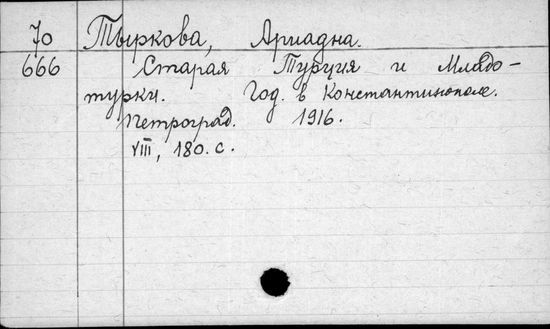 70 Тыркова, Ариадна.
666 Старая Турция и Младо-
турки. Год. в Константинополе.
Петроград. 1916.
VIII, 180. с.